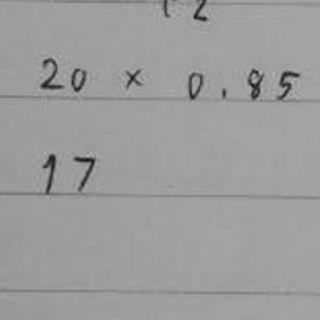 20 × 0.85
17